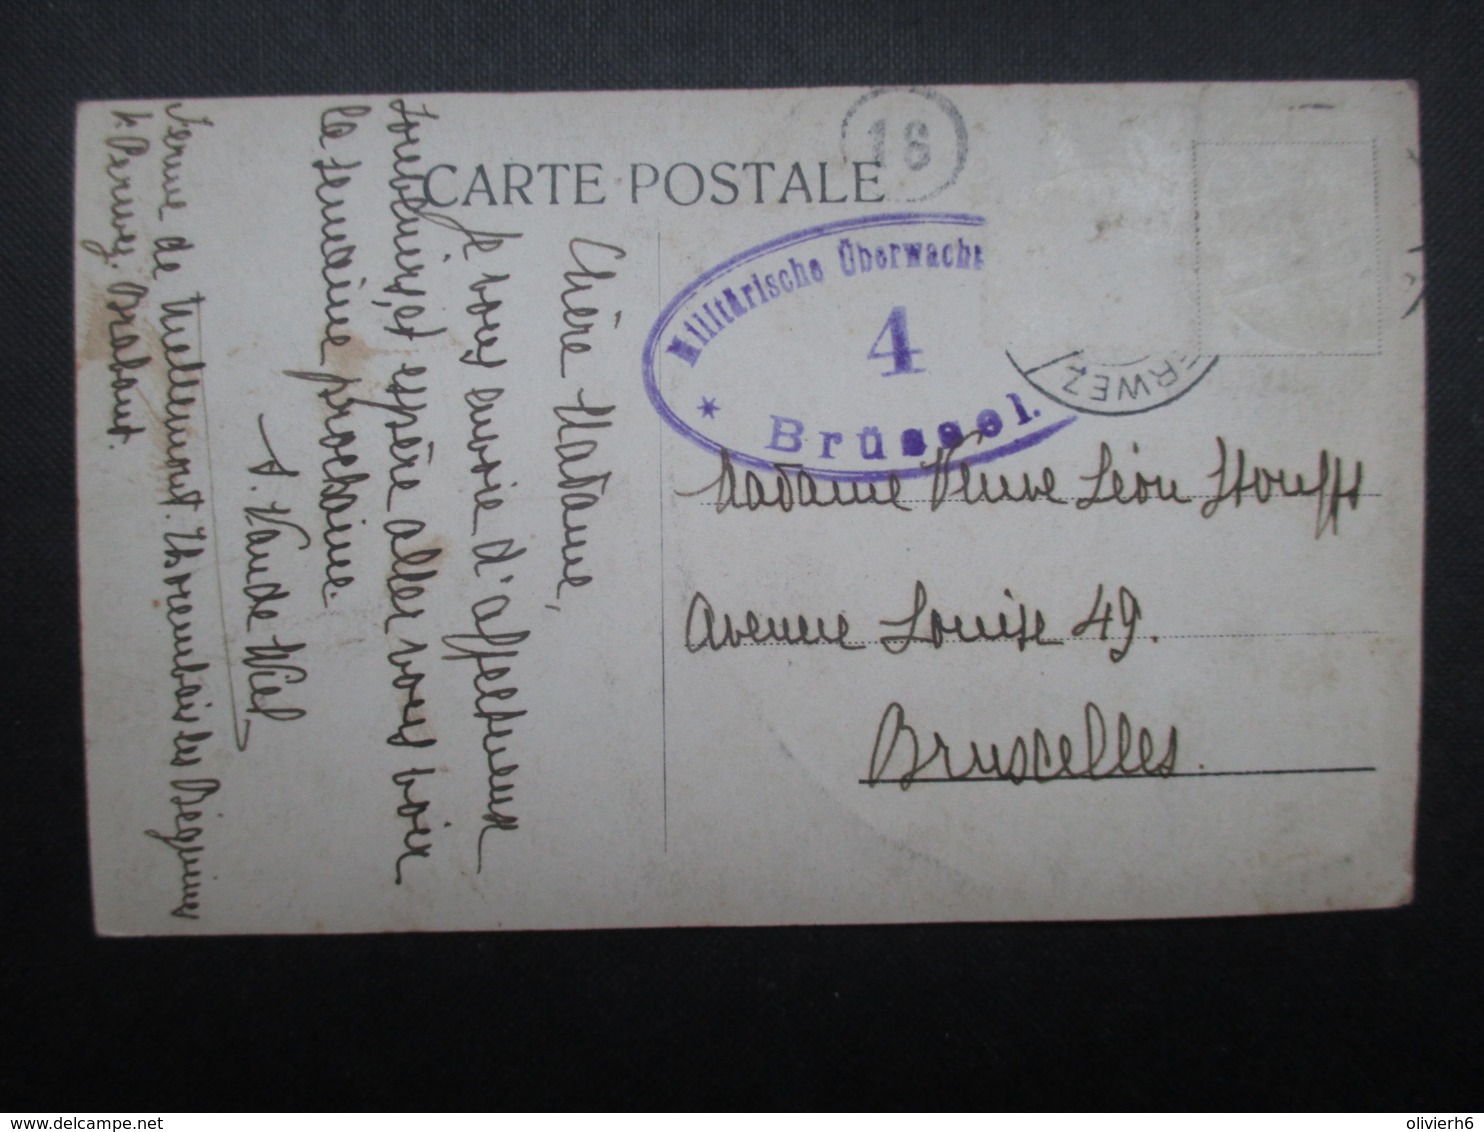 CARTE POSTALE
16
Militärische Überwachs
4
* Brüssel.
ERWEZ
Chère Madame,
Je vous envoie d'affectueux
et espère aller vous voir
la semaine prochaine.
A. Vande Wiel
Ferme de Mellemont. Thorembais les Béguines
p. Perwez. Brabant.
Madame Veuve Léon Stouffs
Avenue Louise 49.
Bruxelles.
delcampe.net
olivierh6